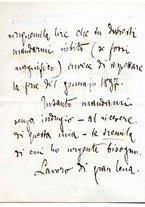 cinquemila lire che tu dovresti
mandarmi subito (se fossi
magnifico) invece di aspettare
la fine del gennajo 1887.
Intanto mandami
senza indugio – al ricevere
di questa mia – le tremila
di cui ho urgente bisogno.
Lavoro di gran lena.